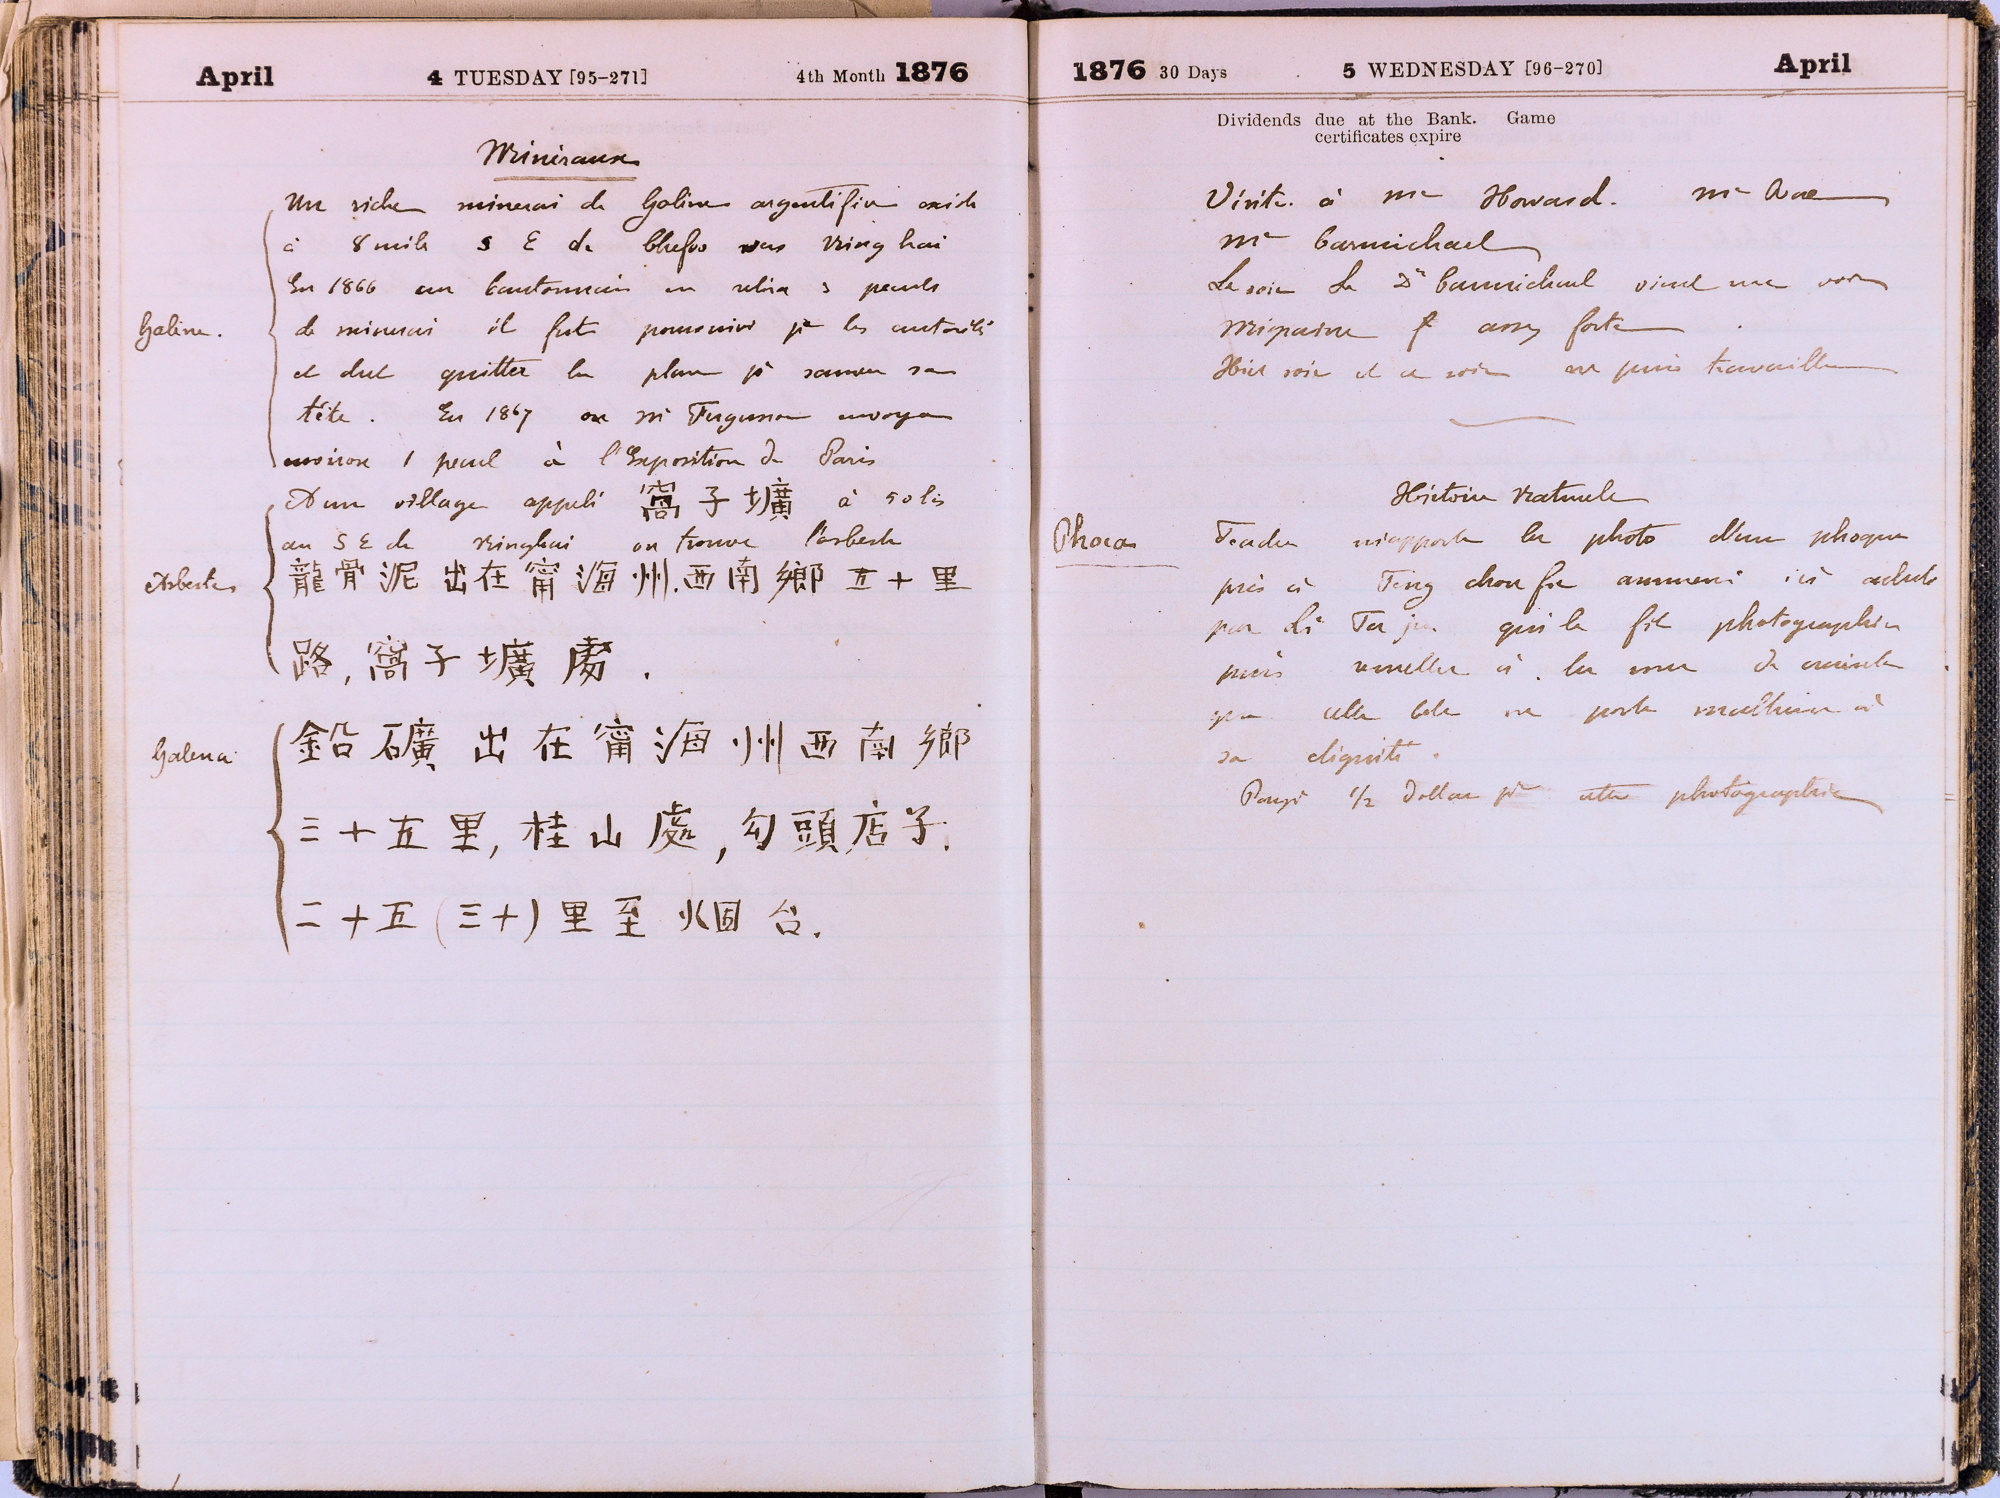 April 4 TUESDAY [95-271] 4th Month 1876
Minéraux
Un riche minerai de Galène argentifère existe
à 8 mile S E de Chefoo vers Ning hai
En 1866 un Cantonnais en retira 3 peculs
Galène. de minerai il fut poursuivi pr les autorités
et dut quitter la place pr sauver sa
tête. En 1867 Mr Fergusson envoya
environ 1 pecul à l'Exposition de Paris
A un village appelé 窩子壙 à 50 lis
au S E de Ninghai on trouve l'asbeste
Asbestes 龍骨泥出在甯海州.西南鄉五十里
路,窩子壙處.
Galena 鉛礦出在甯海州西南鄉
三十五里,桂山處,勾頭店子.
二十五(三十)里至烟台.
1876 30 Days 5 WEDNESDAY [96-270] April
Dividends due at the Bank. Game
certificates expire
Visite à Mr Howard. Mr
Mr Carmichael
Le soir Le Dr Carmichael vient me voir
Migraine assez forte
Hier soir et ce soir ne puis travailler
Histoire Naturelle
Phoca Teudu m'apporte la photo d'un phoque
pris à Teng chou fu amméné ici acheté
par Li Ta jen qui le fit photographier
puis remettre à la mer de crainte
que cette bête ne porte malheur à
sa dignité.
Payé 1/2 Dollar pr cette photographie